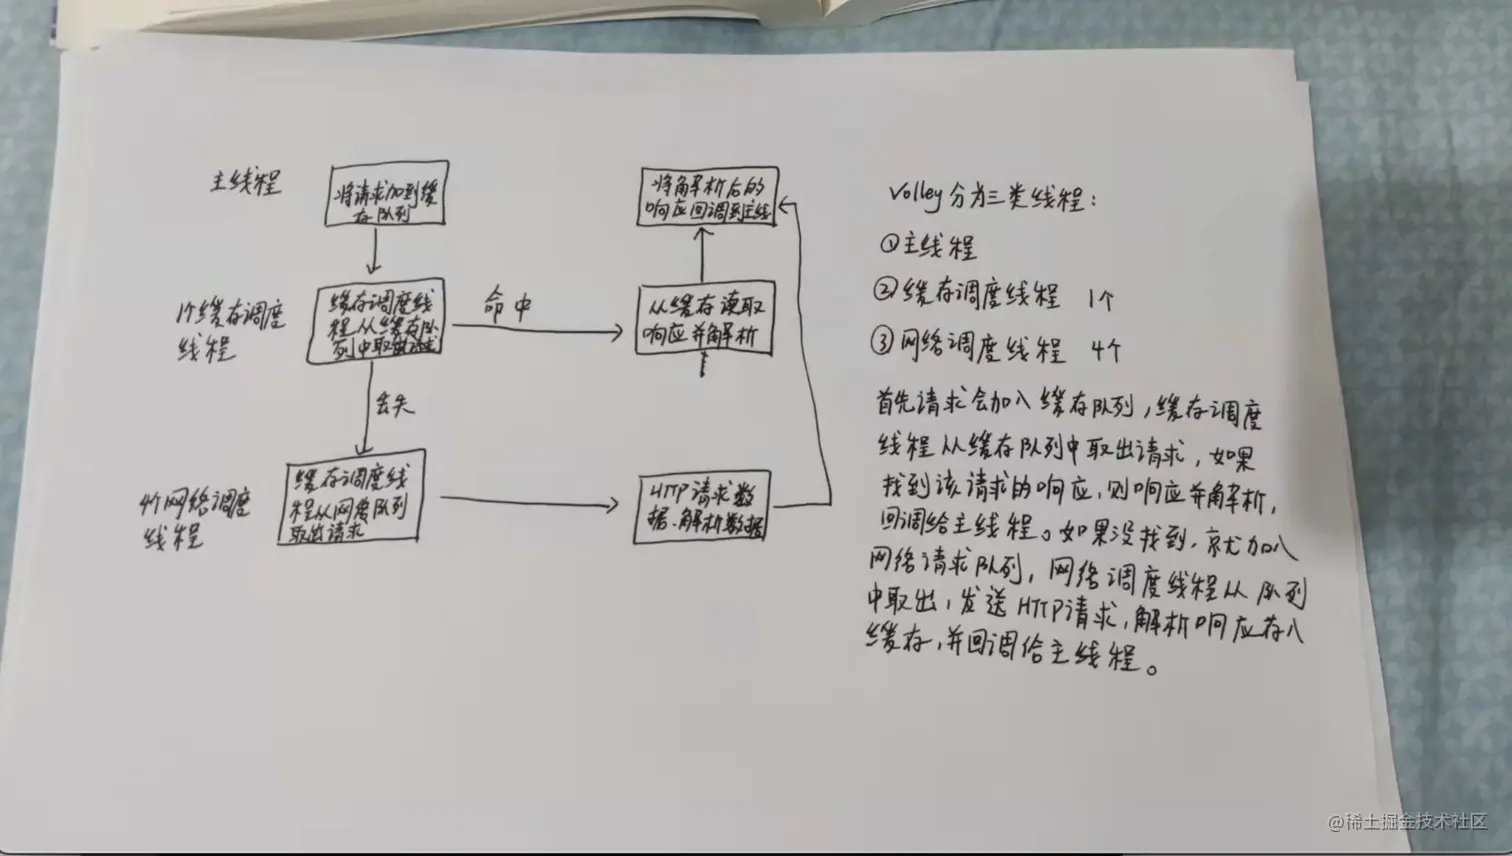 主线程
将请求加到缓
存队列
将解析后的
响应回调到主线
1个缓存调度
线程
缓存调度线
程从缓存队
列中取出请求
命中
从缓存读取
响应并解析
丢失
4个网络调度
线程
缓存调度线
程从网络队列
取出请求
HTTP请求数
据、解析数据
Volley分为三类线程：
①主线程
②缓存调度线程 1个
③网络调度线程 4个
首先请求会加入缓存队列，缓存调度
线程从缓存队列中取出请求，如果
找到该请求的响应，则响应并解析，
回调给主线程。如果没找到，就加入
网络请求队列，网络调度线程从队列
中取出，发送HTTP请求，解析响应存入
缓存，并回调给主线程。
@稀土掘金技术社区